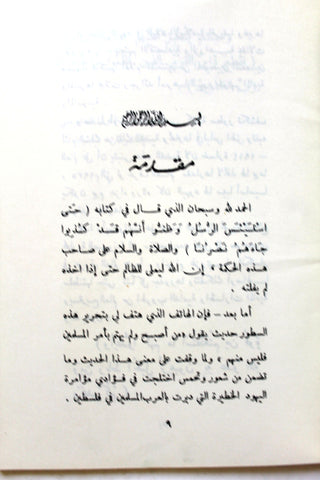 بسم الله الرحمن الرحيم
مقدمة
الحمد لله وسبحان الذي قال في كتابه ( حتى
إذا استيئس الرسل وظنوا أنهم قد كذبوا
جاءهم نصرنا ) والصلاة والسلام على صاحب
هذه الحكمة ، إن الله ليملى للظالم حتى إذا اخذه
لم يفلته .
أما بعد - فإن الهاتف الذي هتف لي بتحرير هذه
السطور حديث يقول « من أصبح ولم يهتم بأمر المسلمين
فليس منهم » ولما وقفت على معنى هذا الحديث وما
تضمن من شعور وتحمس اختلجت في فؤادي مؤامرة
اليهود الخطيرة التي دبرت بالعرب المسلمين في فلسطين .
٩